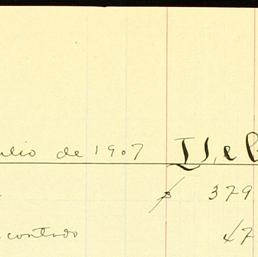 ulio de 1907 De
$ 379
contado 47